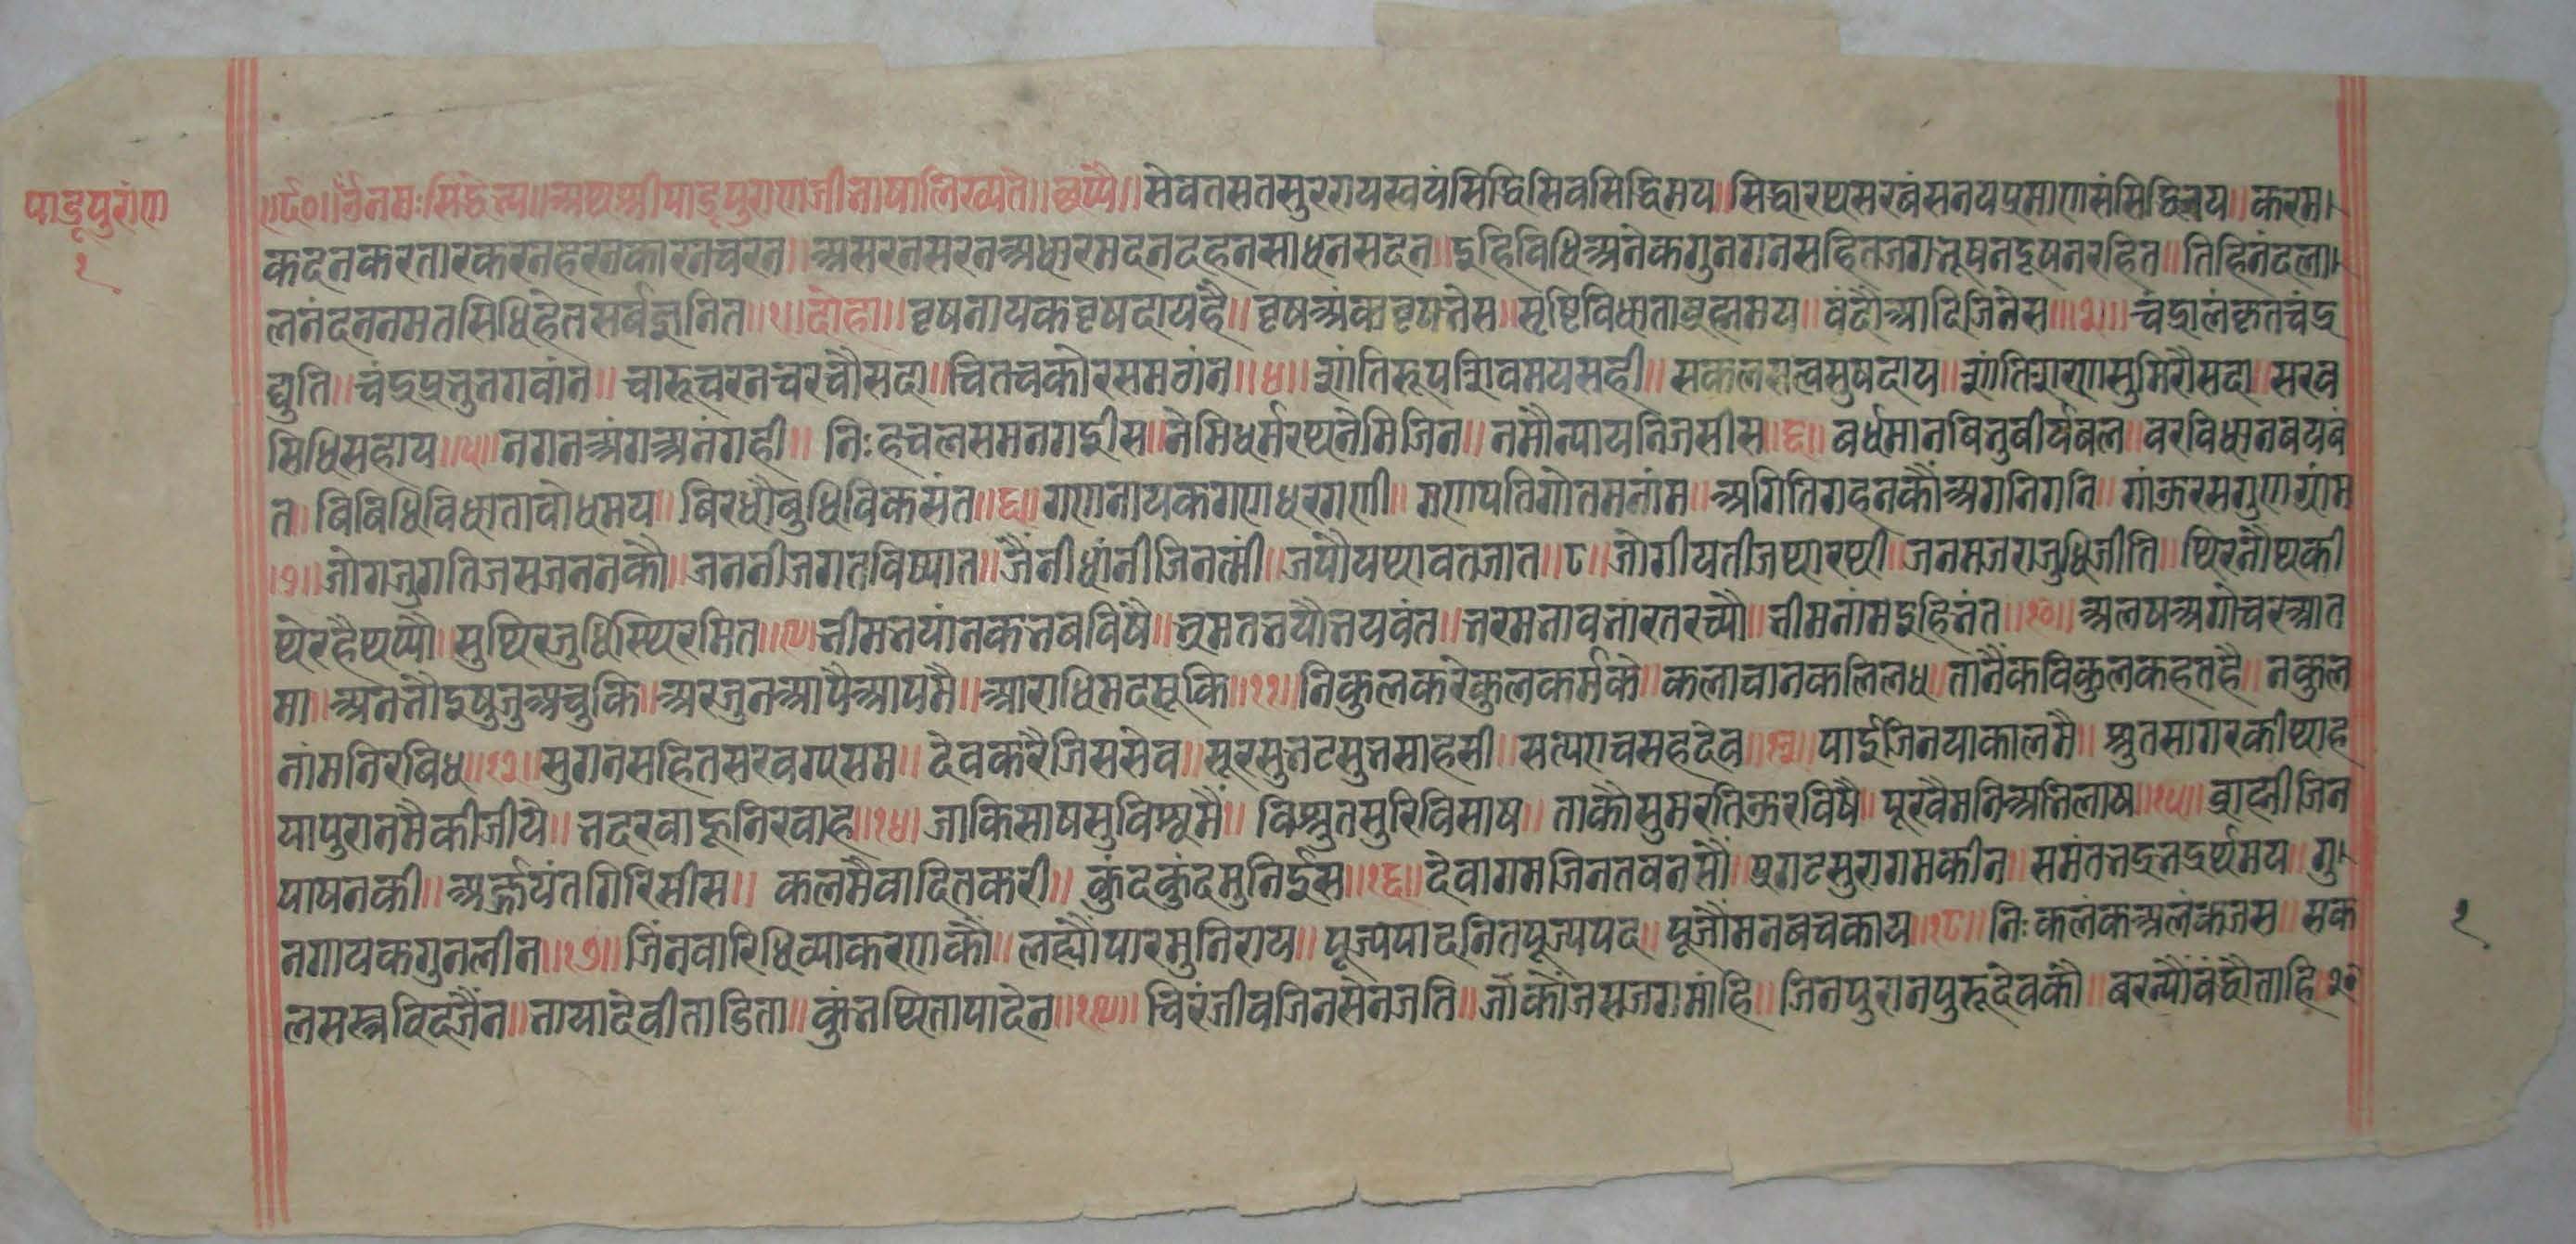 पांडूपुरांण
१
॥र्द०॥ ॐनमःसिद्धेभ्य॥ अथश्रीपांडूपुराणजीभाषालिख्यते॥ छप्पै॥ सेवतसतसुररायस्वयंसिद्धिसिवसिद्धिमय॥ सिद्धारथसरवंसनयप्रमाणसंसिद्धिजय॥ करम।
कदनकरतारकरनहरनकारनचरन॥ असरनसरनअधारमदनदहनसाधनसदन॥ इहिविधिअनेकगुनगनसहितजगभूषनदूषनरहित॥ तिहिनंदला।
लनंदननमतसिधिहेतसर्वज्ञनित॥१॥ दोहा॥ वृषनायकवृषदायहै॥ वृषअंकवृषभेस॥ सृष्टिविधाताब्रह्ममय॥ वंदौआदिजिनेस॥३॥ चंद्रालंकृतचंद्र
द्युति॥ चंद्रप्रभुभगवांन॥ चारूचरनचरचौसदा॥ चितचकोरसमगंन॥४॥ शांतिरूपशिवमयसही॥ सकलसत्वसुषदाय॥ शांतिशरणसुमिरौसदा॥ सरव
सिधिसहाय॥५॥ नगनअंगअनंगही॥ निःहचलसमनगईस॥ नेमिधर्मरथनेमिजिन॥ नमौन्यायनिजसीस॥६॥ बर्धमानबिनुबीर्यबल॥ वरविधानबयबं
त॥ बिबिधिविधातावोधमय॥ बिरधौबुधिविकसंत॥६॥ गणनायकगणधरगणी॥ गणपतिगोतमनांम॥ अगितिगहनकौंअगनिगनि॥ गांऊरमगुणग्रांम
॥७॥ जोगजुगतिजसजननकौ॥ जननीजगतविष्यात॥ जैंनीधांनीजिनत्मीं॥ जपौयथावतजात॥८॥ जोगीयतीजथारथी॥ जनमजराजुधिजीति॥ थिरनौथकी
थेरहैथप्यौ॥ सुथिरजुधिस्थिरमित॥९॥ भीमभयांनकभबविषै॥ भ्रमतभयौभयवंत॥ भरमनावभारतरच्यौ॥ भीमनांमइहिभंत॥१०॥ अलषअगोचरआत
मा॥ अनभौइषुजुअचुकि॥ अरजुनआपैआपमै॥ आराधिमदमूकि॥११॥ निकुलकरेकुलकर्मके॥ कलावानकलिलध॥ तानैंकविकुलकहतहै॥ नकुल
नांमनिरविध॥१२॥ सुगनसहितसरवग्यसम॥ देवकरैजिससेव॥ सूरसुभटसुभसाहसी॥ सत्यरावसहदेव॥१३॥ पाईजिनयाकालमै॥ श्रुतसागरकीथाह
यापुरानमैकीजीयै॥ भदरवाहूनिरवाह॥१४॥ जाकिसाषसुविश्वमैं॥ विश्रुतसुरिविसाष॥ ताकौसुमरतिऊरविषै॥ पूरवैमनिअभिलाष॥१५॥ ब्राह्मीजिन
पाषनकी॥ अर्ऊयंतगिरिसीस॥ कलमैवादितकरी॥ कुंदकुंदमुनिईस॥१६॥ देवागमजिनतवनसौं॥ प्रगटसुरागमकीन॥ समंतभद्रभद्रर्थमय॥ गु।
नगायकगुनलीन॥१७॥ जिंनवारिधिव्याकरणकौं॥ लह्यौंपारमुनिराय॥ पूज्यपादनितपूज्यपद॥ पूजौंमनबचकाय॥१८॥ निःकलंकअलंकजस॥ सक
१
लसस्त्रविदजैंन॥ मायादेवीताडिता॥ कुंभथितापादेन॥१९॥ चिरंजीवजिनसेनजति॥ जांकौंजसजगमांहि॥ जिनपुरानपुरूदेवकौ॥ बरन्यौंवंद्यौताहि॥२०